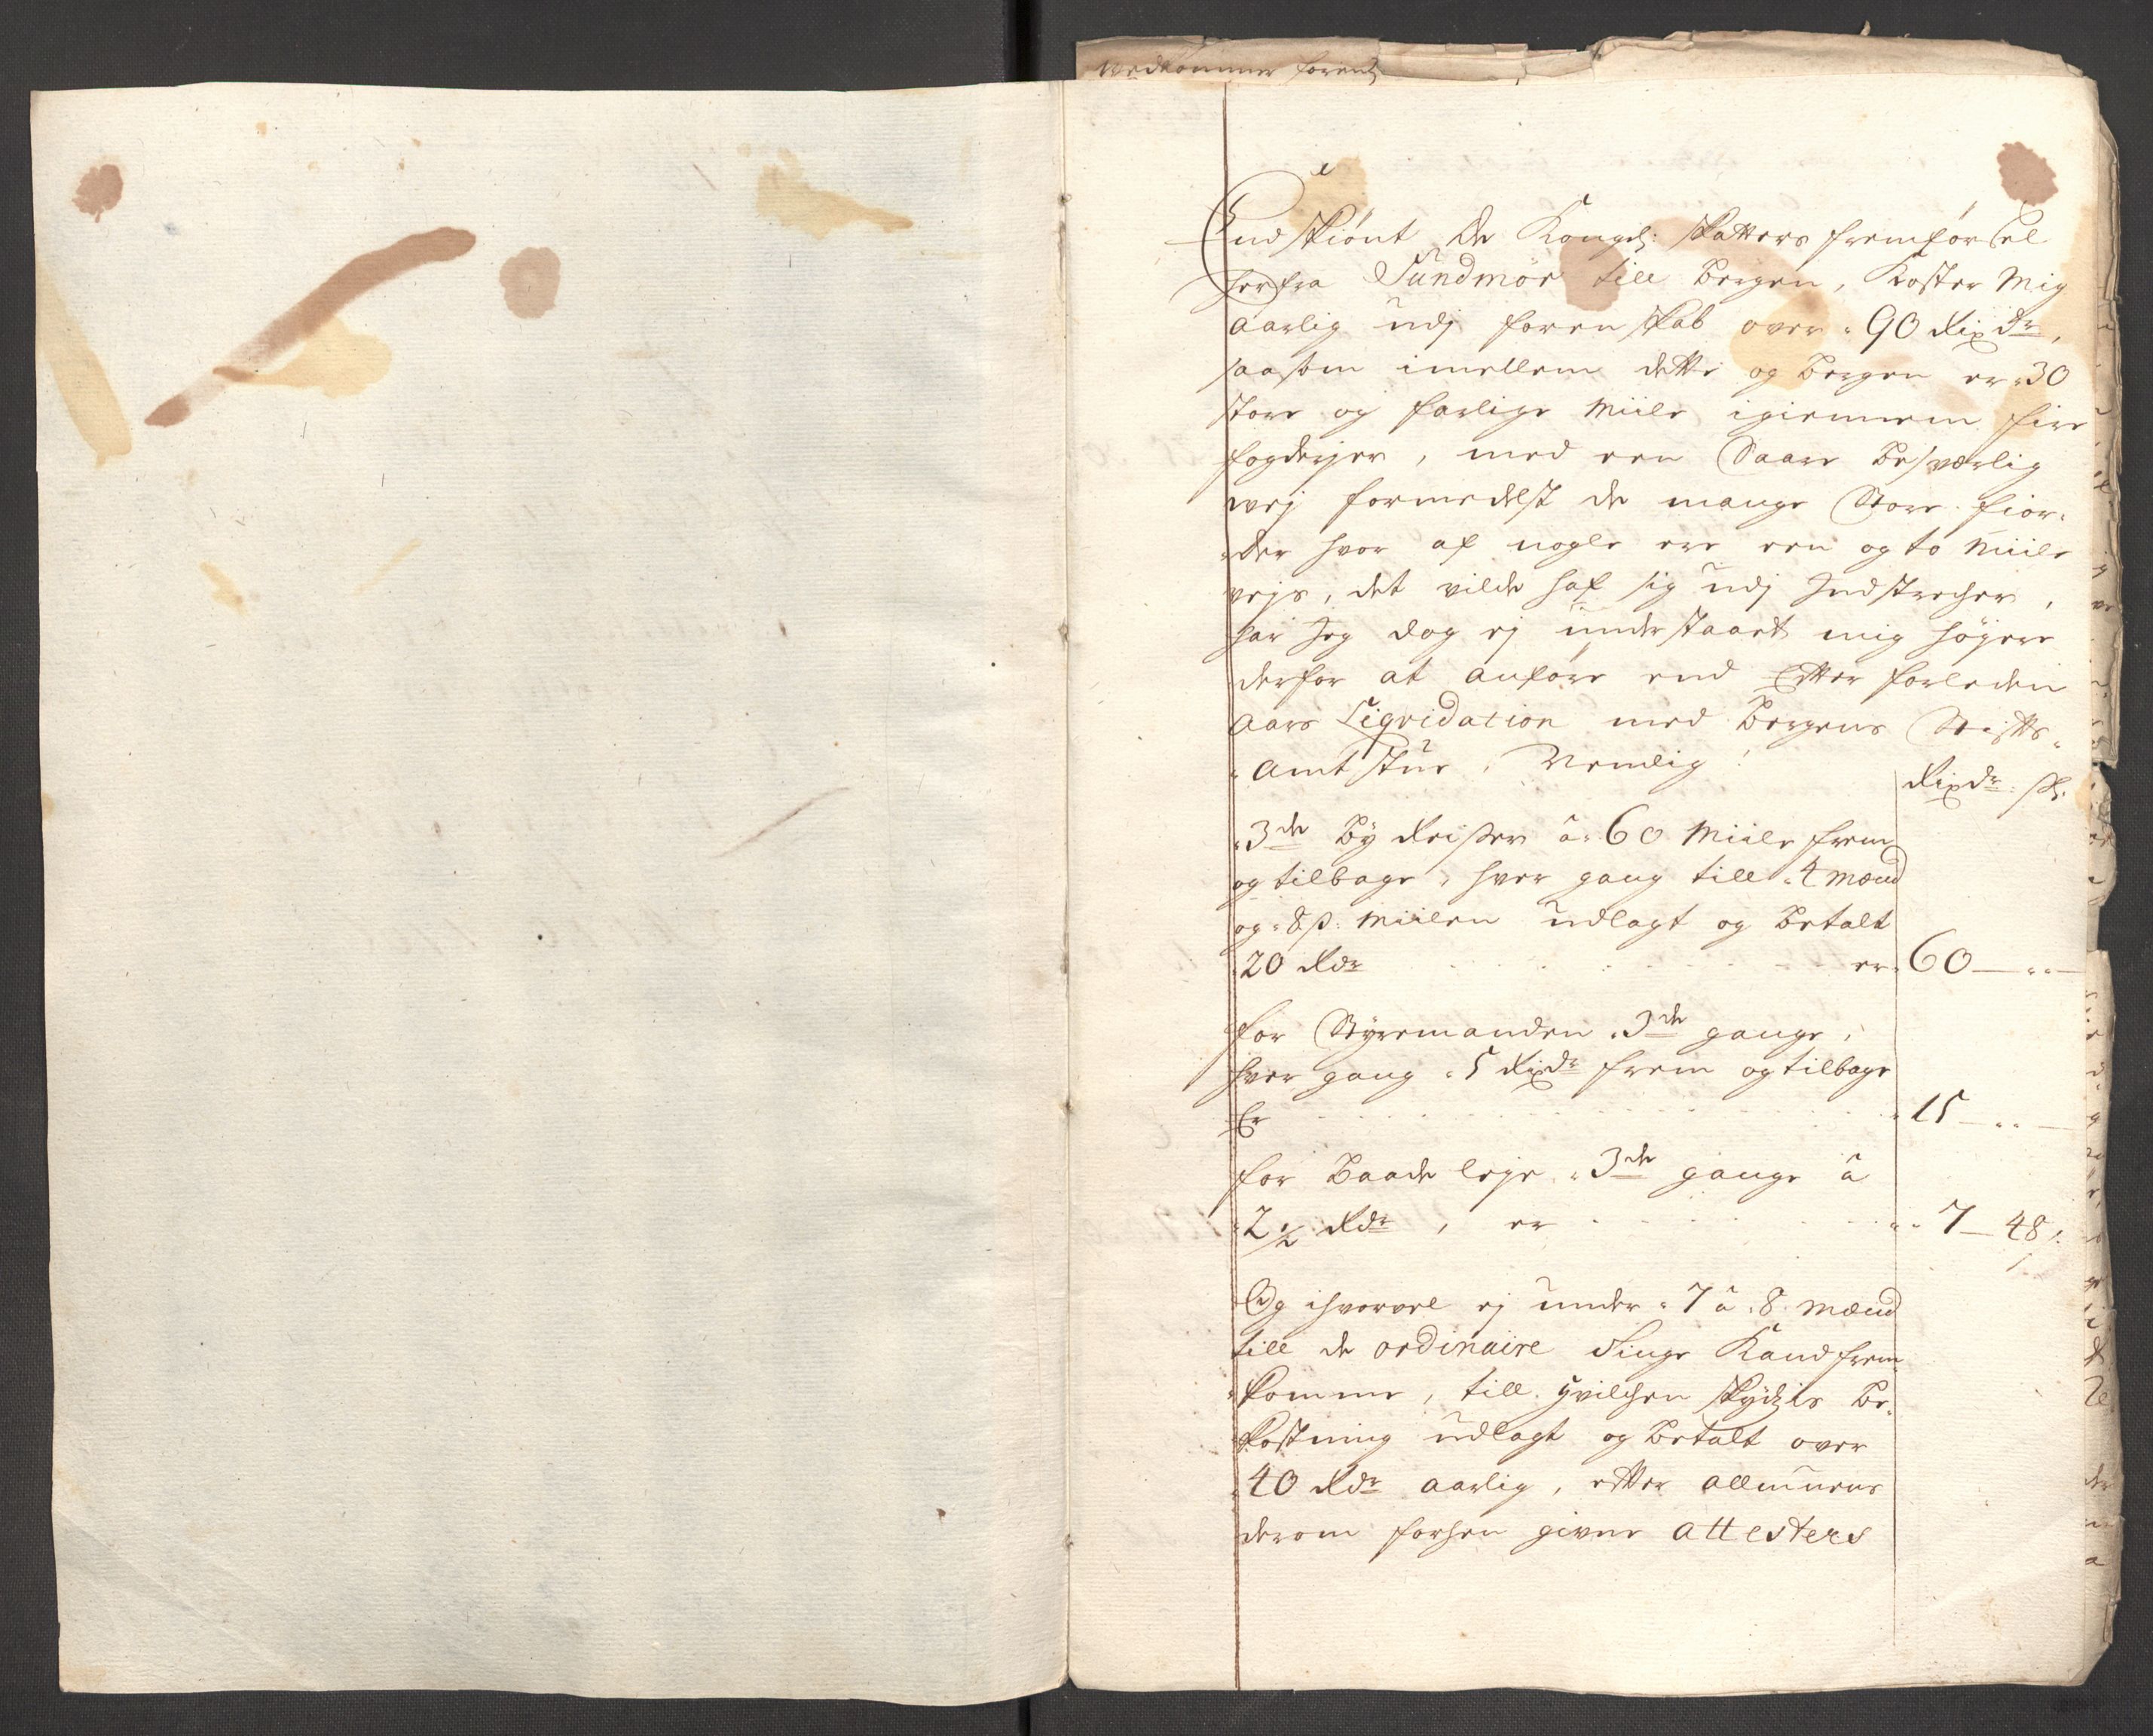 vedkommer foren
End skiönt De Kongl: skatters fremförsel
herfra Sundmör till Bergen, Koster Mig
aarlig udj foren skab over 90 Rixdr,
saasom imellem dette og Bergen er 30
store og farlige Miile igiennem fire
fogderjer, med een Saare besværlig
vej formedelst de mange Store fior-
der hvor af nogle ere een og to Miile
vejs, det vilde haf sig udj Indstrecher,
har Jeg dog ej understaaet mig höjere
derfor at anföre end Efter forleden
aars Liqvidation med Bergens Stifts-
amtstue, Nemlig:
Rixdr: sk:
3de By Reiser â 60 Miile frem
og tilbage, hver gang till 4 mænd
og 8 s: Miilen udlagt og betalt
20 Rdr er 60 —
for Styremanden 3de gange,
hver gang 5 Rixdr frem og tilbage
Er 15 —
for Baade leje 3de gange â
2 1/2 Rdr, er 7 — 48
Og ihvorvel ej under 7 â 8 mænd
till de ordinaire Tinge Kand frem
komme, till hvilchen skydzis be-
kostning udlagt og betalt over
40 Rdr aarlig, efter allmuens
derom forhen givne attesters